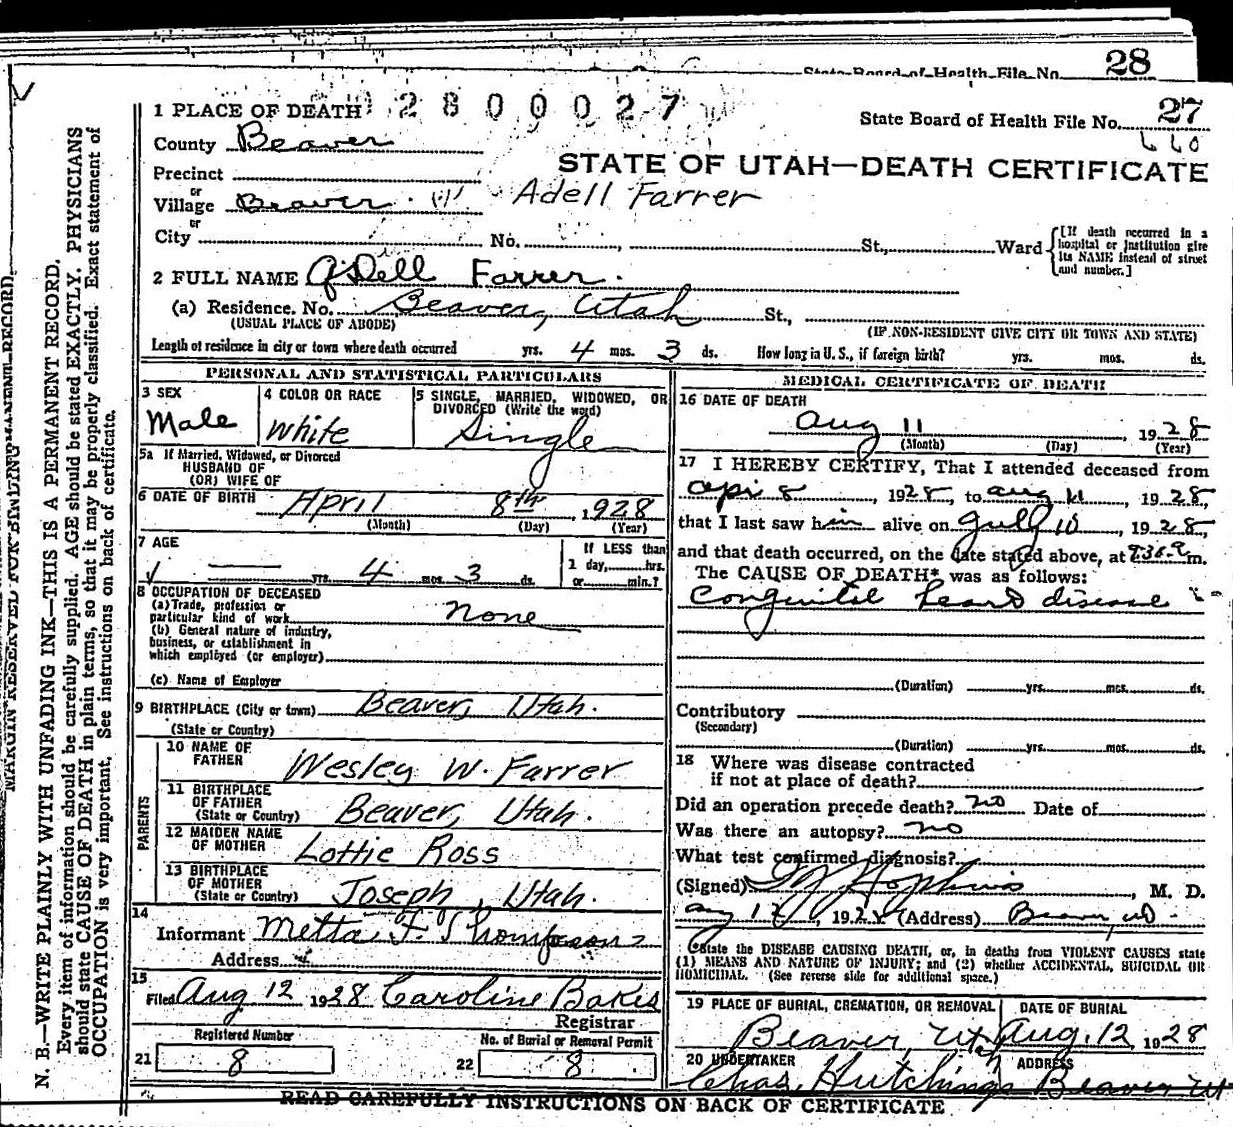 State Board of Health File No. 28
1 PLACE OF DEATH 2800027
State Board of Health File No. 27
660
County Beaver
STATE OF UTAH—DEATH CERTIFICATE
Precinct
or
Village Beaver
Adell Farrer
or
City No. St., Ward
[If death occurred in a hospital or institution give its NAME instead of street and number.]
2 FULL NAME A'Dell Farrer.
(a) Residence. No. Beaver, Utah St.,
(USUAL PLACE OF ABODE) (IF NON-RESIDENT GIVE CITY OR TOWN AND STATE)
Length of residence in city or town where death occurred yrs. 4 mos. 3 ds. How long in U. S., if foreign birth? yrs. mos. ds.
PERSONAL AND STATISTICAL PARTICULARS
3 SEX
Male
4 COLOR OR RACE
White
5 SINGLE, MARRIED, WIDOWED, OR DIVORCED (Write the word)
Single
5a If Married, Widowed, or Divorced
HUSBAND OF
(OR) WIFE OF
6 DATE OF BIRTH April 8th, 1928
(Month) (Day) (Year)
7 AGE
yrs. 4 mos. 3 ds.
If LESS than
1 day, hrs.
or min.?
8 OCCUPATION OF DECEASED
(a) Trade, profession or
particular kind of work none
(b) General nature of industry,
business, or establishment in
which employed (or employer)
(c) Name of Employer
9 BIRTHPLACE (City or town) Beaver, Utah.
(State or Country)
PARENTS
10 NAME OF
FATHER Wesley W. Farrer
11 BIRTHPLACE
OF FATHER Beaver, Utah.
(State or Country)
12 MAIDEN NAME
OF MOTHER Lottie Ross
13 BIRTHPLACE
OF MOTHER Joseph, Utah.
(State or Country)
14
Informant Metta F. Thompson
Address
15
Filed Aug 12 1928 Caroline Bakes
Registrar
Registered Number
21 8
No. of Burial or Removal Permit
22 8
MEDICAL CERTIFICATE OF DEATH
16 DATE OF DEATH
Aug 11, 1928
(Month) (Day) (Year)
17 I HEREBY CERTIFY, That I attended deceased from
Apr 8, 1928, to Aug 11, 1928,
that I last saw him alive on July 10, 1928,
and that death occurred, on the date stated above, at m.
The CAUSE OF DEATH* was as follows:
Congenital heart disease
(Duration) yrs. mos. ds.
Contributory
(Secondary)
(Duration) yrs. mos. ds.
18 Where was disease contracted
if not at place of death?
Did an operation precede death? no Date of
Was there an autopsy? no
What test confirmed diagnosis?
(Signed) Hopkins, M. D.
Aug 12, 192 (Address) Beaver, Ut.
*State the DISEASE CAUSING DEATH, or, in deaths from VIOLENT CAUSES state
(1) MEANS AND NATURE OF INJURY; and (2) whether ACCIDENTAL, SUICIDAL OR
HOMICIDAL. (See reverse side for additional space.)
19 PLACE OF BURIAL, CREMATION, OR REMOVAL
Beaver, Utah
DATE OF BURIAL
Aug. 12, 1928
20 UNDERTAKER ADDRESS
Chas. Hutchings Beaver Ut
READ CAREFULLY INSTRUCTIONS ON BACK OF CERTIFICATE
MARGIN RESERVED FOR BINDING PERMANENT RECORD.
N. B.—WRITE PLAINLY WITH UNFADING INK—THIS IS A PERMANENT RECORD.
Every item of information should be carefully supplied. AGE should be stated EXACTLY. PHYSICIANS
should state CAUSE OF DEATH in plain terms, so that it may be properly classified. Exact statement of
OCCUPATION is very important. See instructions on back of certificate.